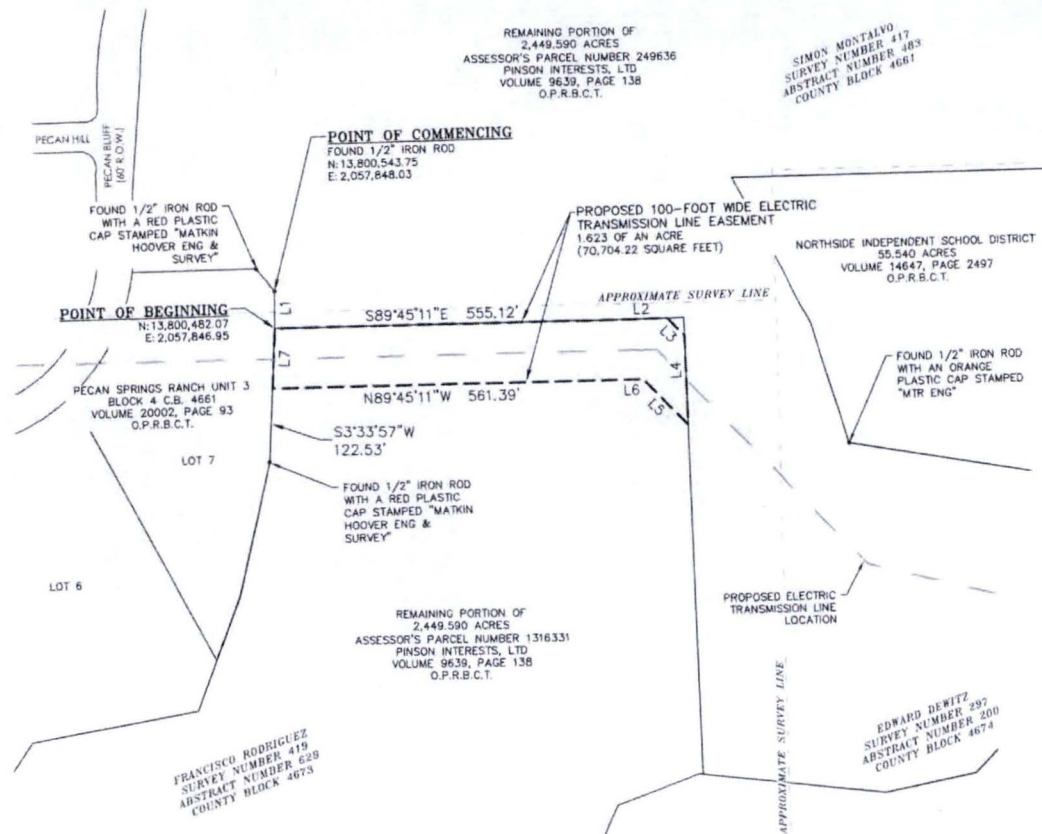 REMAINING PORTION OF
2,449.590 ACRES
ASSESSOR'S PARCEL NUMBER 249636
PINSON INTERESTS, LTD
VOLUME 9639, PAGE 138
O.P.R.B.C.T.
SIMON MONTALVO
SURVEY NUMBER 417
ABSTRACT NUMBER 483
COUNTY BLOCK 4661
PECAN HILL
PECAN BLUFF
(60' R.O.W.)
POINT OF COMMENCING
FOUND 1/2" IRON ROD
N:13,800,543.75
E: 2,057,848.03
FOUND 1/2" IRON ROD
WITH A RED PLASTIC
CAP STAMPED "MATKIN
HOOVER ENG &
SURVEY"
PROPOSED 100-FOOT WIDE ELECTRIC
TRANSMISSION LINE EASEMENT
1.623 OF AN ACRE
(70,704.22 SQUARE FEET)
NORTHSIDE INDEPENDENT SCHOOL DISTRICT
55.540 ACRES
VOLUME 14647, PAGE 2497
O.P.R.B.C.T.
POINT OF BEGINNING
N:13,800,482.07
E: 2,057,846.95
L1
S89°45'11"E 555.12'
APPROXIMATE SURVEY LINE
L2
L3
L4
L7
N89°45'11"W 561.39'
L6
L5
FOUND 1/2" IRON ROD
WITH AN ORANGE
PLASTIC CAP STAMPED
"MTR ENG"
PECAN SPRINGS RANCH UNIT 3
BLOCK 4 C.B. 4661
VOLUME 20002, PAGE 93
O.P.R.B.C.T.
S3°33'57"W
122.53'
LOT 7
FOUND 1/2" IRON ROD
WITH A RED PLASTIC
CAP STAMPED "MATKIN
HOOVER ENG &
SURVEY"
LOT 6
PROPOSED ELECTRIC
TRANSMISSION LINE
LOCATION
REMAINING PORTION OF
2,449.590 ACRES
ASSESSOR'S PARCEL NUMBER 1316331
PINSON INTERESTS, LTD
VOLUME 9639, PAGE 138
O.P.R.B.C.T.
APPROXIMATE SURVEY LINE
FRANCISCO RODRIGUEZ
SURVEY NUMBER 419
ABSTRACT NUMBER 628
COUNTY BLOCK 4673
EDWARD DEWITZ
SURVEY NUMBER 297
ABSTRACT NUMBER 200
COUNTY BLOCK 4674